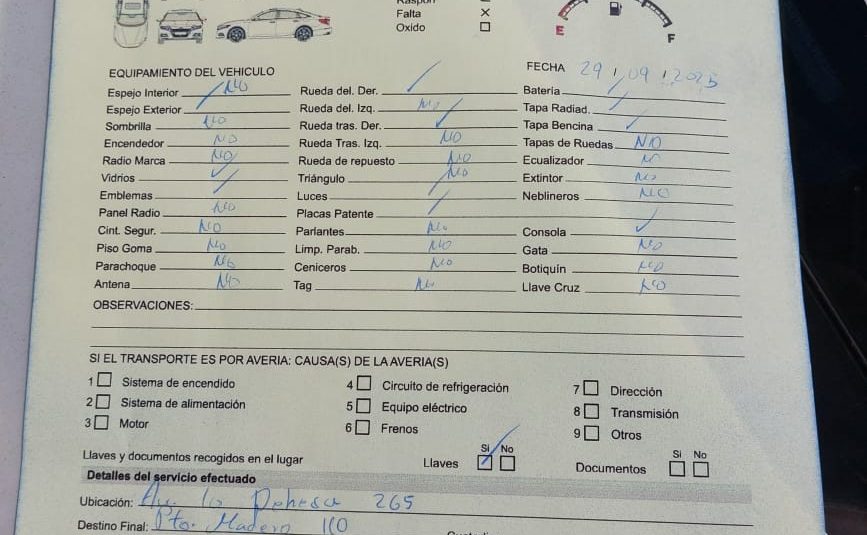 Falta X
Oxido
E F
EQUIPAMIENTO DEL VEHICULO FECHA 29 / 09 / 2025
Espejo Interior NO Rueda del. Der. Batería
Espejo Exterior Rueda del. Izq. NO Tapa Radiad.
Sombrilla NO Rueda tras. Der. Tapa Bencina
Encendedor NO Rueda Tras. Izq. NO Tapas de Ruedas NO
Radio Marca NO Rueda de repuesto NO Ecualizador NO
Vidrios Triángulo NO Extintor NO
Emblemas Luces Neblineros NO
Panel Radio NO Placas Patente
Cint. Segur. NO Parlantes NO Consola
Piso Goma NO Limp. Parab. NO Gata NO
Parachoque NO Ceniceros NO Botiquín NO
Antena NO Tag NO Llave Cruz NO
OBSERVACIONES:
SI EL TRANSPORTE ES POR AVERIA: CAUSA(S) DE LA AVERIA(S)
1 Sistema de encendido 4 Circuito de refrigeración 7 Dirección
2 Sistema de alimentación 5 Equipo eléctrico 8 Transmisión
3 Motor 6 Frenos 9 Otros
Si No Si No
Llaves y documentos recogidos en el lugar Llaves Documentos
Detalles del servicio efectuado
Ubicación: Av. la Dehesa 265
Destino Final: Pto. Madero 110